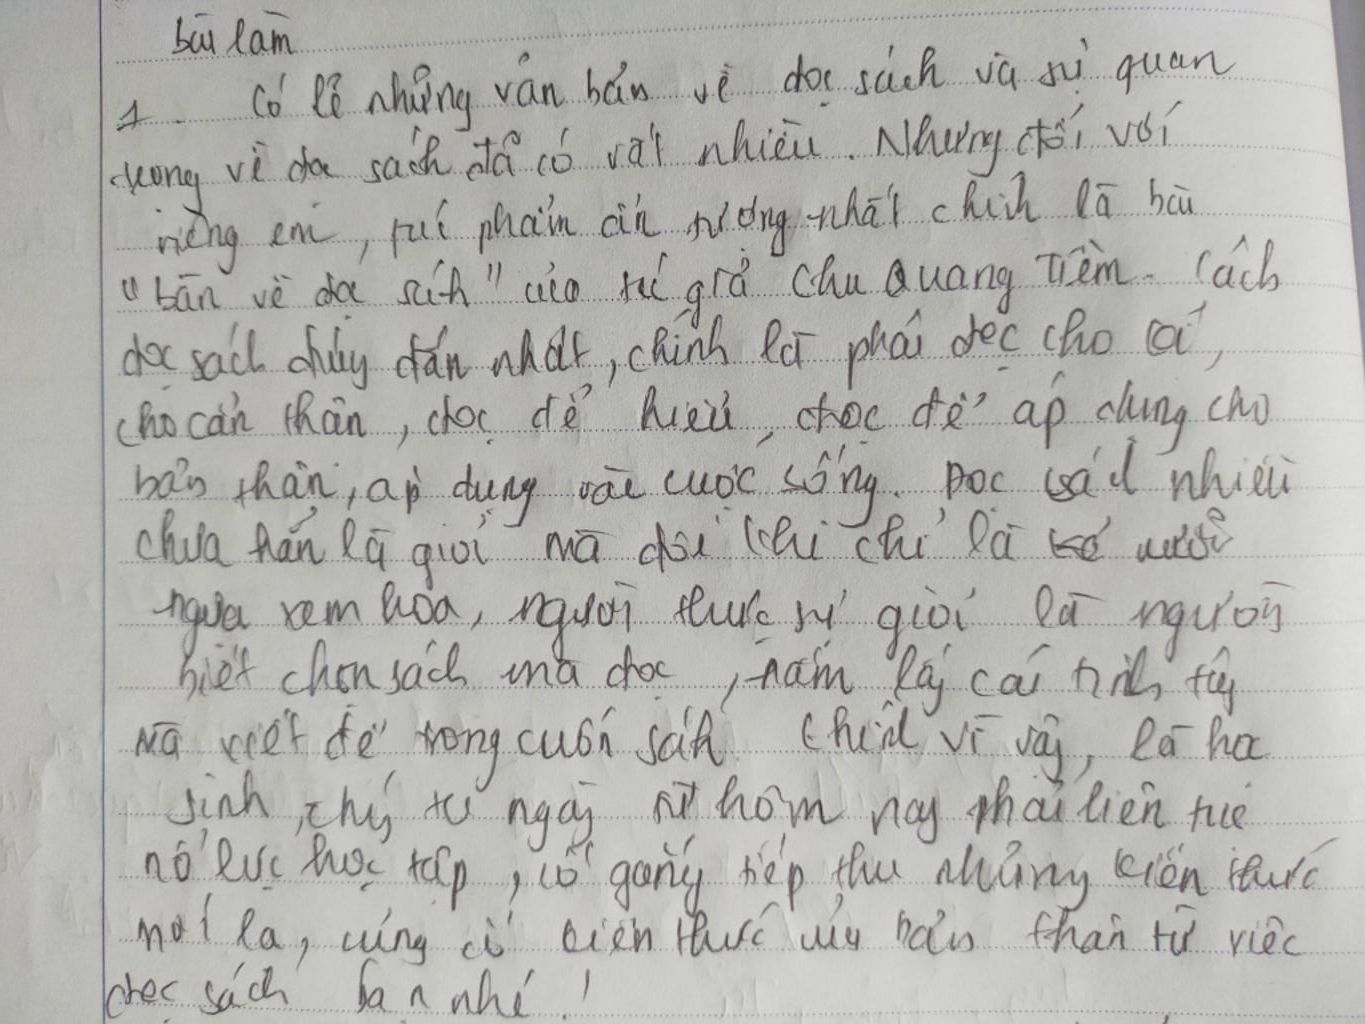 bài làm
1. Có lẽ những văn bản về đọc sách và sự quan
trọng về đọc sách đã có rất nhiều. Nhưng đối với
riêng em, tác phẩm ấn tượng nhất chính là bài
"bàn về đọc sách" của tác giả Chu Quang Tiềm. Cách
đọc sách đúng đắn nhất, chính là phải đọc cho kĩ,
cho cẩn thận, đọc để hiểu, đọc để áp dụng cho
bản thân, áp dụng vào cuộc sống. Đọc sách nhiều
chưa hẳn là giỏi mà đôi khi chỉ là cưỡi
ngựa xem hoa, người thực sự giỏi là người
biết chọn sách mà đọc, nắm lấy cái tinh túy
mà viết để trong cuốn sách. Chính vì vậy, là học
sinh, ngay từ hôm nay phải liên tục
nỗ lực học tập, cố gắng tiếp thu những kiến thức
mới lạ, củng cố kiến thức của bản thân từ việc
đọc sách bạn nhé!